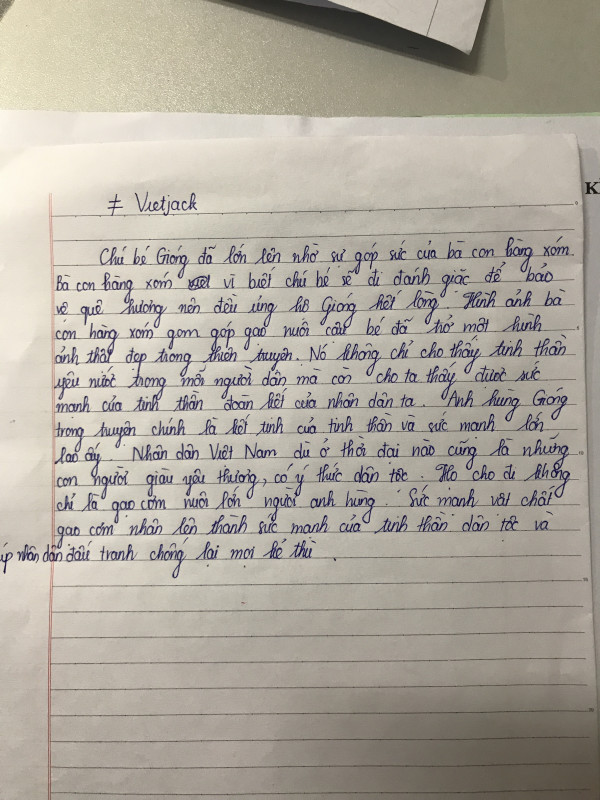 # Vietjack
K
Chú bé Gióng đã lớn lên nhờ sự góp sức của bà con hàng xóm.
Bà con hàng xóm vì biết chú bé sẽ đi đánh giặc để bảo
vệ quê hương nên đều ủng hộ Gióng hết lòng. Hình ảnh bà
con hàng xóm gom góp gạo nuôi cậu bé đã trở một hình
ảnh thật đẹp trong thiên truyện. Nó không chỉ cho thấy tinh thần
yêu nước trong mỗi người dân mà còn cho ta thấy được sức
mạnh của tinh thần đoàn kết của nhân dân ta. Anh hùng Gióng
trong truyện chính là kết tinh của tinh thần và sức mạnh lớn
lao ấy. Nhân dân Việt Nam dù ở thời đại nào cũng là những
con người giàu yêu thương, có ý thức dân tộc. Họ cho đi không
chỉ là gạo cơm nuôi lớn người anh hùng. Sức mạnh vật chất
gạo cơm nhân lên thành sức mạnh của tinh thần dân tộc và
úp nhân dân đấu tranh chống lại mọi kẻ thù.